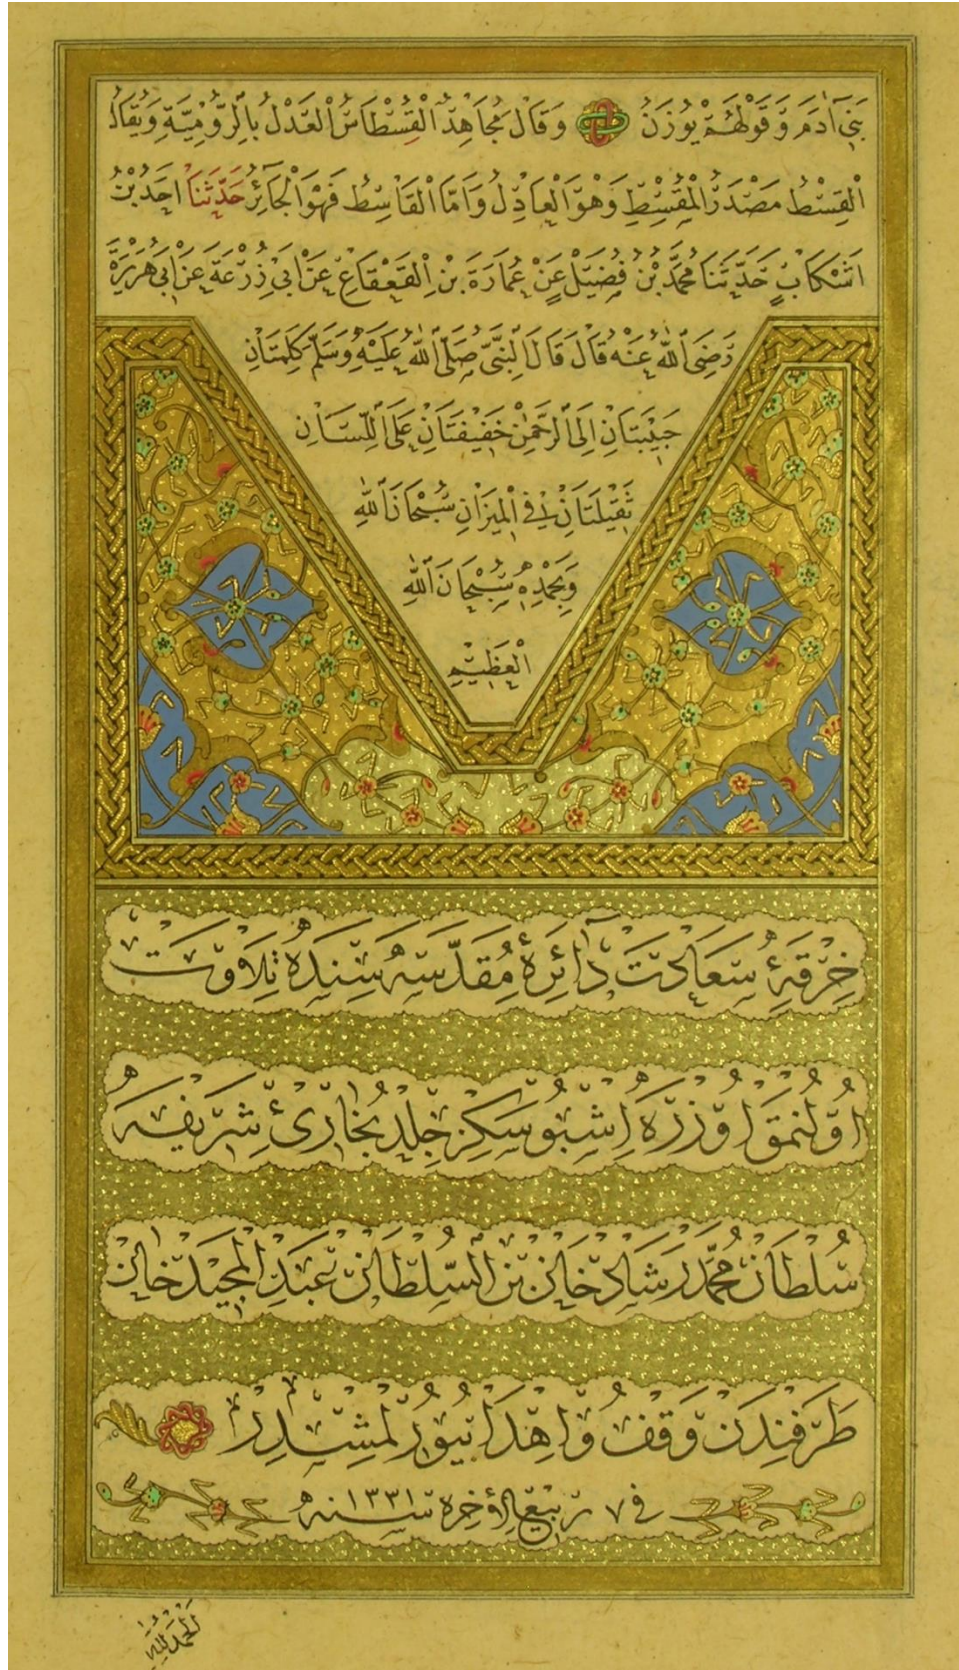 بَنِي آدَمَ وَقَوْلَهُمْ يُوزَنُ وَقَالَ مُجَاهِدٌ الْقِسْطَاسُ الْعَدْلُ بِالرُّومِيَّةِ وَيُقَالُ
الْقِسْطُ مَصْدَرُ الْمُقْسِطِ وَهُوَ الْعَادِلُ وَأَمَّا الْقَاسِطُ فَهُوَ الْجَائِرُ حَدَّثَنَا احَمَدُ بْنُ
اشْكَابٍ حَدَّثَنَا مُحَمَّدُ بْنُ فُضَيْلٍ عَنْ عُمَارَةَ بْنِ الْقَعْقَاعِ عَنْ ابِي زُرْعَةَ عَنْ ابِي هُرَيْرَةَ
رَضِيَ اللّٰهُ عَنْهُ قَالَ قَالَ النَّبِيُّ صَلَّى اللّٰهُ عَلَيْهِ وَسَلَّمَ كَلِمَتَانِ
حَبِيبَتَانِ اِلَى الرَّحْمٰنِ خَفِيفَتَانِ عَلَى اللِّسَانِ
ثَقِيلَتَانِ فِي الْمِيزَانِ سُبْحَانَ اللّٰهِ
وَبِحَمْدِهِ سُبْحَانَ اللّٰهِ
الْعَظِيمِ
خِرْقَهِٔ سَعَادَتْ دَائِرَهٔ مُقَدَّسَه سِنْدَه تِلَاوَتْ
اُوْلُنْمَقْ اُوْزَرَه اِشْبُو سَكِزْ جِلْد بُخَارِئ شَرِيفَه
سُلْطَانْ مُحَمَّدْ رَشَادْ خَانْ بْنِ السُّلْطَانْ عَبْدِ الْمَجِيدْ خَانْ
طَرَفِنْدَنْ وَقْفْ وُ اِهْدَا بُيُورُلْمِشْدِرْ
في ٧ رَبِيعِ الْأٰخِرَه سَنَه ١٣٣١
الْحَمْدُ لِلّٰهِ